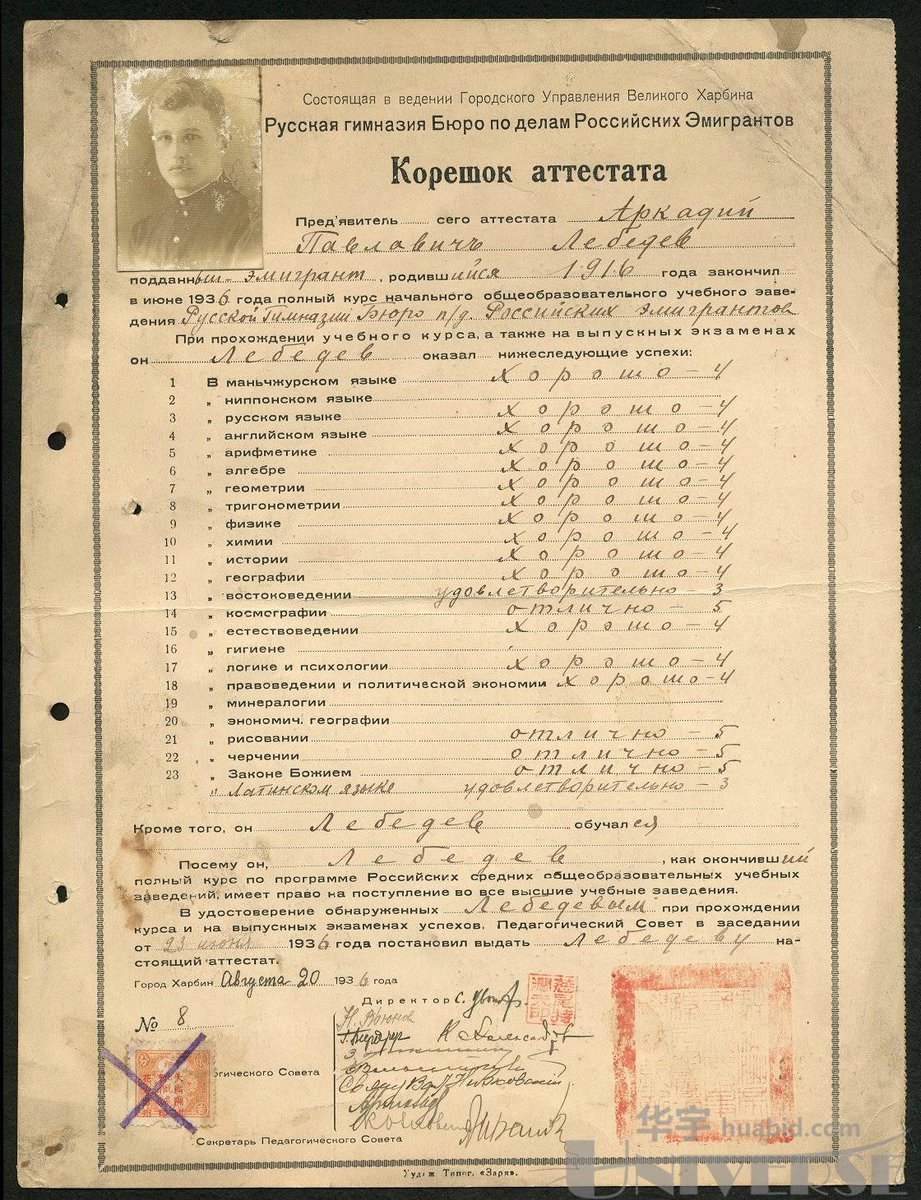 Состоящая в ведении Городского Управления Великого Харбина
Русская гимназия Бюро по делам Российских Эмигрантов
Корешок аттестата
Пред'явитель сего аттестата Аркадий
Павловичъ Лебедев
подданный - эмигрант, родившийся 1916 года закончил
в июне 1936 года полный курс начального общеобразовательного учебного заве-
дения Русской Гимназии Бюро п/д. Российских эмигрантов
При прохождении учебного курса, а также на выпускных экзаменах
он Лебедев оказал нижеследующие успехи:
1 В маньчжурском языке хорошо - 4
2 „ ниппонском языке
3 „ русском языке хорошо - 4
4 „ английском языке хорошо - 4
5 „ арифметике хорошо - 4
6 „ алгебре хорошо - 4
7 „ геометрии хорошо - 4
8 „ тригонометрии хорошо - 4
9 „ физике хорошо - 4
10 „ химии хорошо - 4
11 „ истории хорошо - 4
12 „ географии хорошо - 4
13 „ востоковедении удовлетворительно - 3
14 „ космографии отлично - 5
15 „ естествоведении хорошо - 4
16 „ гигиене
17 „ логике и психологии хорошо - 4
18 „ правоведении и политической экономии хорошо - 4
19 „ минералогии
20 „ экономич. географии
21 „ рисовании отлично - 5
22 „ черчении отлично - 5
23 „ Законе Божием отлично - 5
„ Латинском языке удовлетворительно - 3
Кроме того, он Лебедев обучался
Посему он, Лебедев, как окончивший
полный курс по программе Российских средних общеобразовательных учебных
заведений, имеет право на поступление во все высшие учебные заведения.
В удостоверение обнаруженных Лебедевым при прохождении
курса и на выпускных экзаменах успехов, Педагогический Совет в заседании
от 23 июня 1936 года постановил выдать Лебедеву на-
стоящий аттестат.
Город Харбин Августа 20 1936 года
Директор
№ 8
гогического Совета
Секретарь Педагогического Совета
Худож. Типог. «Заря».
华宇 huabid.com
UNIVERSE